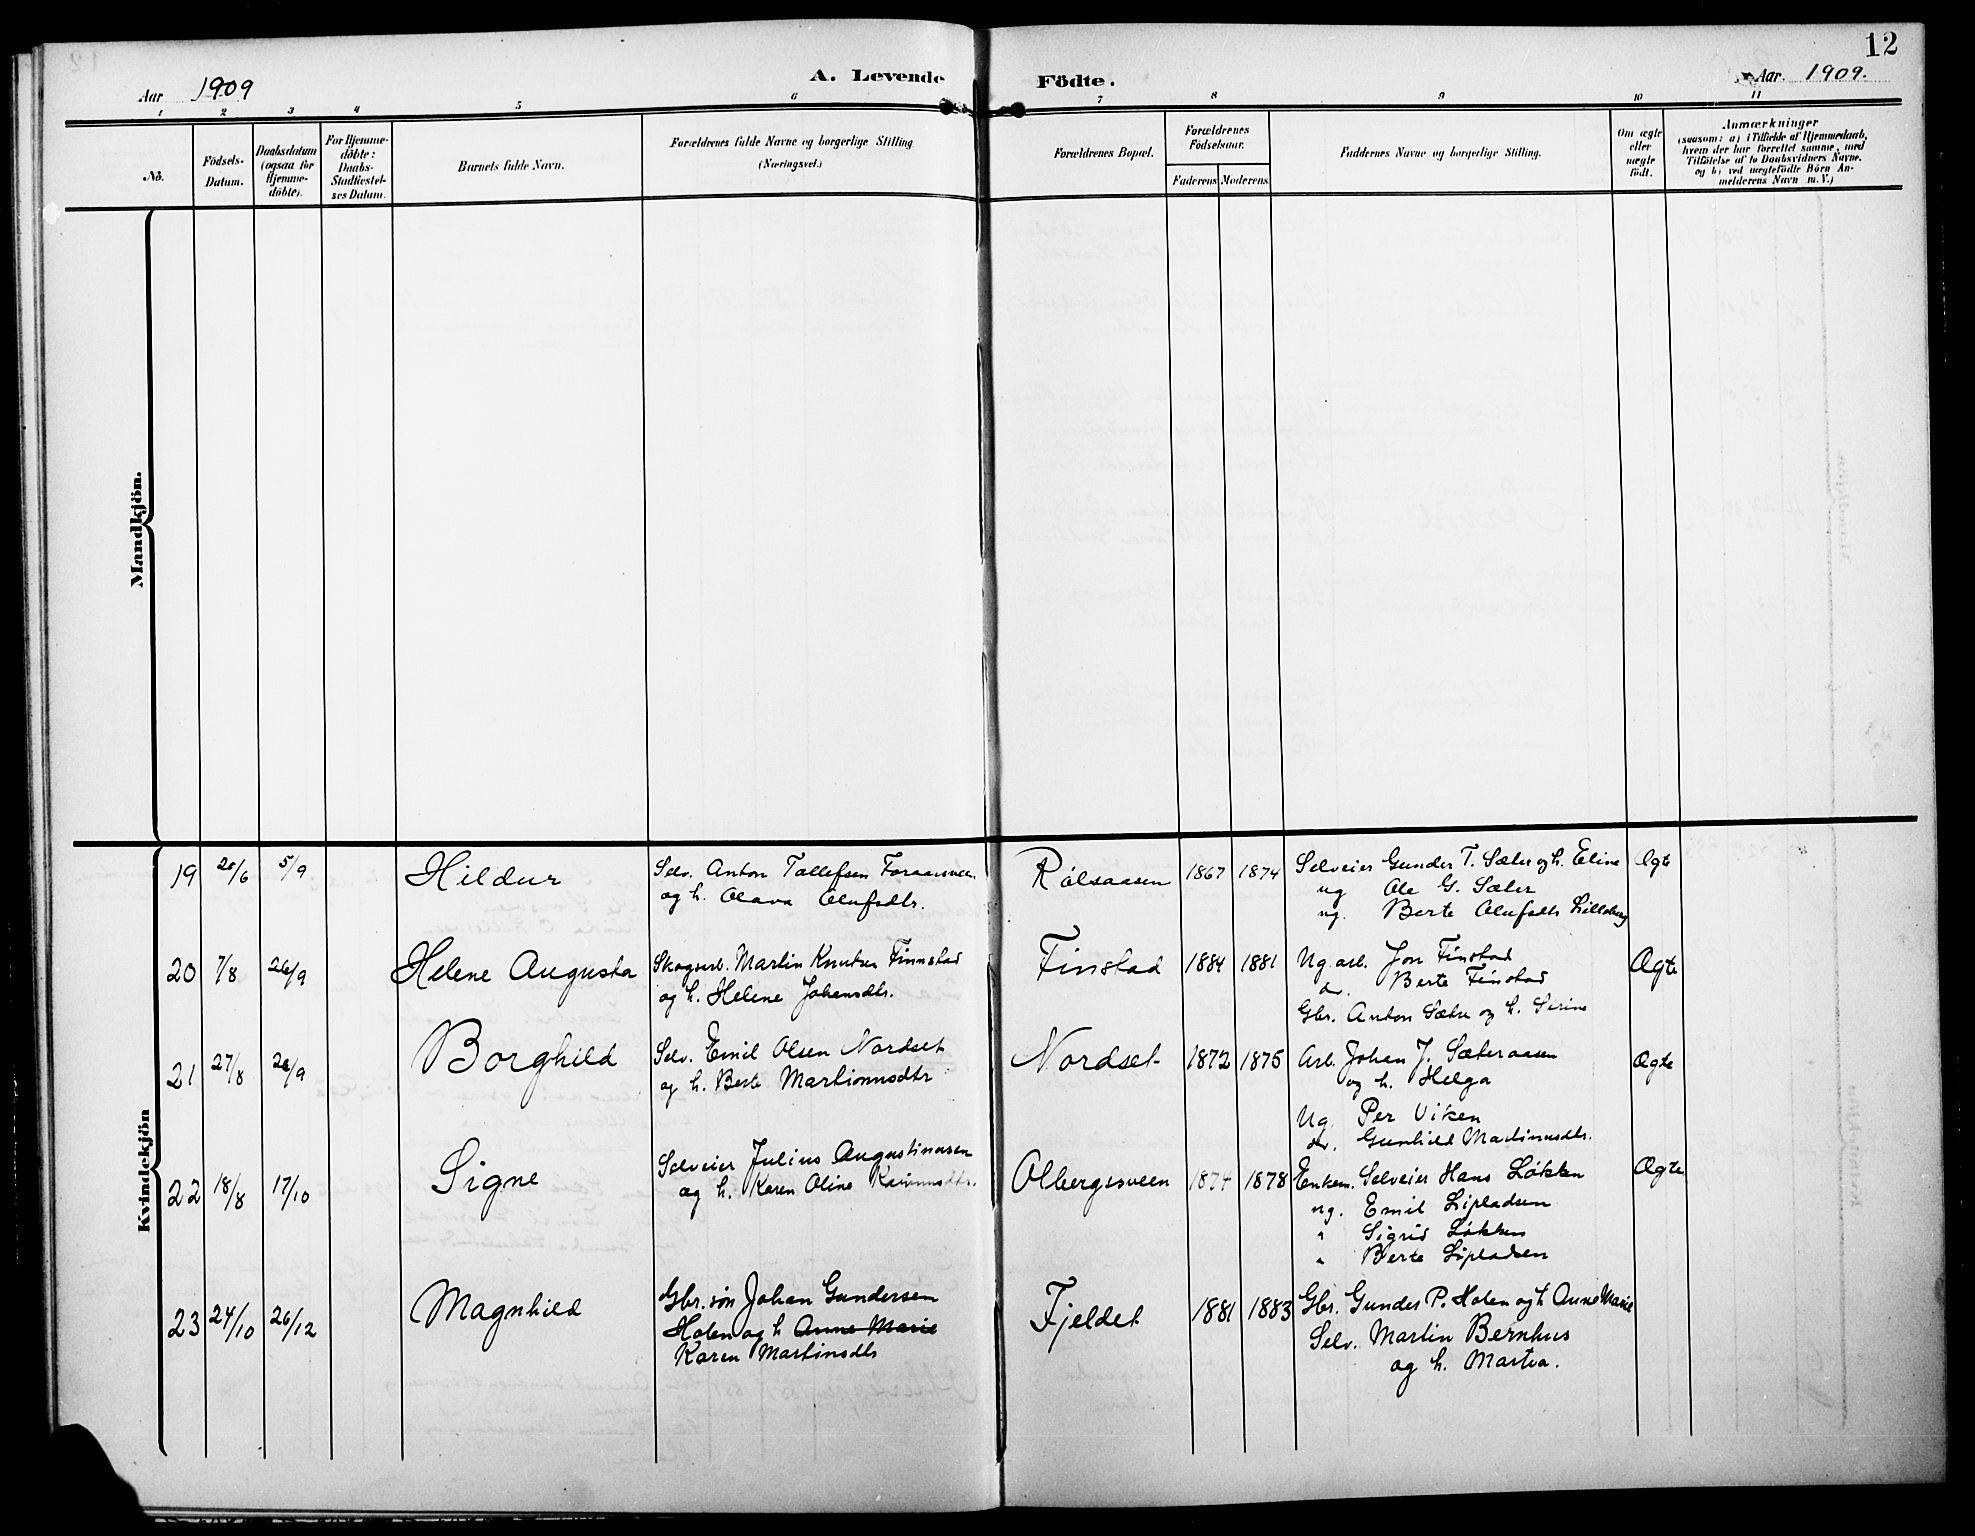 12
Aar 1909
A. Levende Födte.
Aar 1909.
1 2 3 4 5 6 7 8 9 10 11
No.
Födsels-
Datum.
Daabsdatum
(ogsaa for
Hjemme-
döbte).
For Hjemme-
döbte:
Daabs-
Stadfæstel-
ses Datum.
Barnets fulde Navn.
Forældrenes fulde Navne og borgerlige Stilling
(Næringsvei.)
Forældrenes Bopæl.
Forældrenes
Födselsaar.
Faderens Moderens
Faddernes Navne og borgerlige Stilling.
Om ægte
eller
uægte
födt.
Anmærkninger
(saasom: a) i Tilfælde af Hjemmedaab,
hvem der har forrettet samme, med
Tilföielse af to Daabsvidners Navne,
og b) ved uægtefödte Börn An-
melderens Navn m. V.)
Mandkjön.
Kvindekjön
19 20/6 5/9 Hildur
Selv. Anton Tollefsen
og h. Olava Olufsdtr.
1867 1874
Selveier Gunder T. Sæter og h. Eline
ug Ole G. Sæter
ug. Berte Olufsdtr Lilleberg
Ægte
20 7/8 26/9 Helene Augusta
Skogsarb. Martin Knutsen Finnstad
og h. Helene Johansdtr.
Finstad 1884 1881
Ug. arb. Jon Finstad
do. Berte Finstad
Gbr. Anton Sætre og h. Serine
Ægte
21 27/8 26/9 Borghild
Selv. Emil Olsen Nordset
og h. Berte Martinusdtr
Nordset 1872 1875
Arb. Johan J. Sæteraasen
og h. Helga
Ug. Per Viken
do. Gunhild Martinusdtr.
Ægte
22 18/8 17/10 Signe
Selveier Julius Augustinusen
og h. Karen Oline
Olbergsveen 1874 1878
Enkem. Selveier Hans Løkken
ug. Emil Lipladsen
" Sigrid Løkken
" Berte Lipladsen
Ægte
23 24/10 26/12 Magnhild
Gbr. søn Johan Gundersen
Holen og h Anne Marie
Karen Martinsdtr
Fjeldet 1881 1883
Gbr. Gunder P. Holen og h Anne Marie
Selv. Martin Bernhus
og h. Martea.